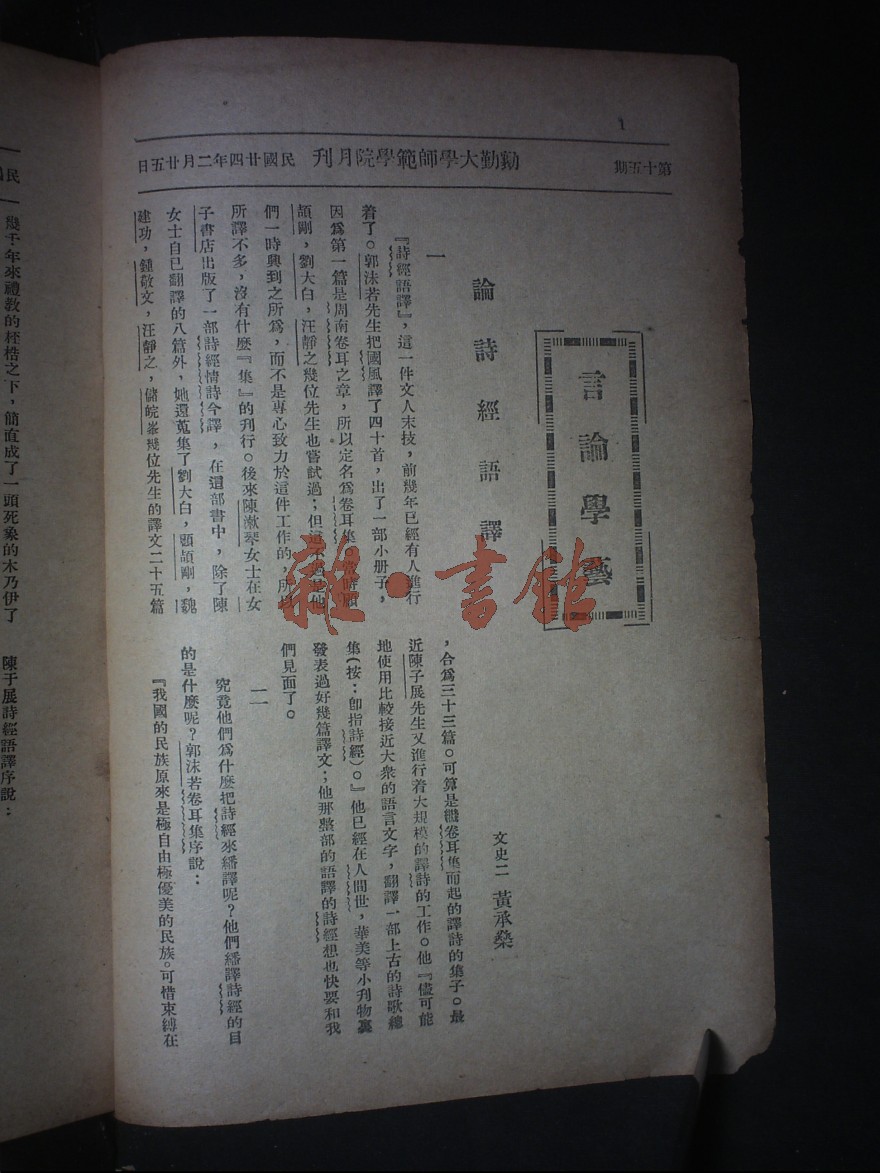 1
第十五期
勷勤大學師範學院月刊
民國廿四年二月廿五日
言論學藝
論詩經語譯
文史二 黃承燊
一
『詩經語譯』，這一件文人末技，前幾年已經有人進行
着了。郭沫若先生把國風譯了四十首，出了一部小册子，
因爲第一篇是周南卷耳之章，所以定名爲卷耳集。當時顧
頡剛，劉大白，汪靜之幾位先生也嘗試過；但這不過是他
們一時興到之所爲，而不是專心致力於這件工作的，所以
所譯不多，沒有什麽『集』的刊行。後來陳漱琴女士在女
子書店出版了一部詩經情詩今譯，在這部書中，除了陳
女士自己翻譯的八篇外，她還蒐集了劉大白，顧頡剛，魏
建功，鍾敬文，汪靜之，儲皖峯幾位先生的譯文二十五篇
，合爲三十三篇。可算是繼卷耳集而起的譯詩的集子。最
近陳子展先生又進行着大規模的譯詩的工作。他『儘可能
地使用比較接近大衆的語言文字，翻譯一部上古的詩歌總
集(按：卽指詩經)。』他已經在人間世，華美等小刊物裏
發表過好幾篇譯文；他那整部的語譯的詩經想也快要和我
們見面了。
二
究竟他們爲什麽把詩經來繙譯呢？他們繙譯詩經的目
的是什麽呢？郭沫若卷耳集序說：
『我國的民族原來是極自由極優美的民族。可惜束縛在
民
幾千年來禮教的桎梏之下，簡直成了一頭死象的木乃伊了
陳子展詩經語譯序說：
雜·書館